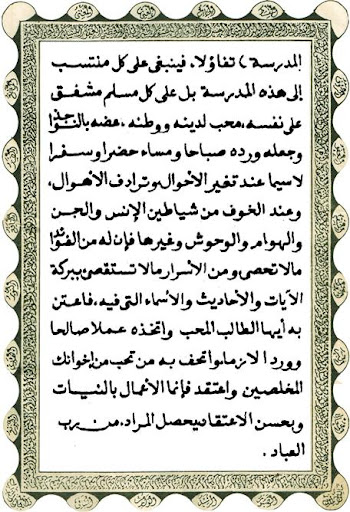 المدرسة ) تفاؤلا، فينبغى على كل منتسب
إلى هذه المدرسة بل على كل مسلم مشفق
على نفسه، محب لدينه ووطنه، عضه بالنواجذ
وجعله ورده صباحا ومساء حضرا وسفرا
لاسيما عند تغير الأحوال وترادف الأهوال،
وعند الخوف من شياطين الإنس والجن
والهوام والوحوش وغيرها فإن له من الفوائد
مالا تحصى ومن الأسرار مالا تستقصى ببركة
الآيات والأحاديث والأسماء التى فيه، فاعتن
به أيها الطالب المحب واتخذه عملا صالحا
ووردا لازما واتحف به من تحب من إخوانك
المخلصين واعتقد فإنما الأعمال بالنيات
وبحسن الاعتقاد يحصل المراد، من رب
العباد.